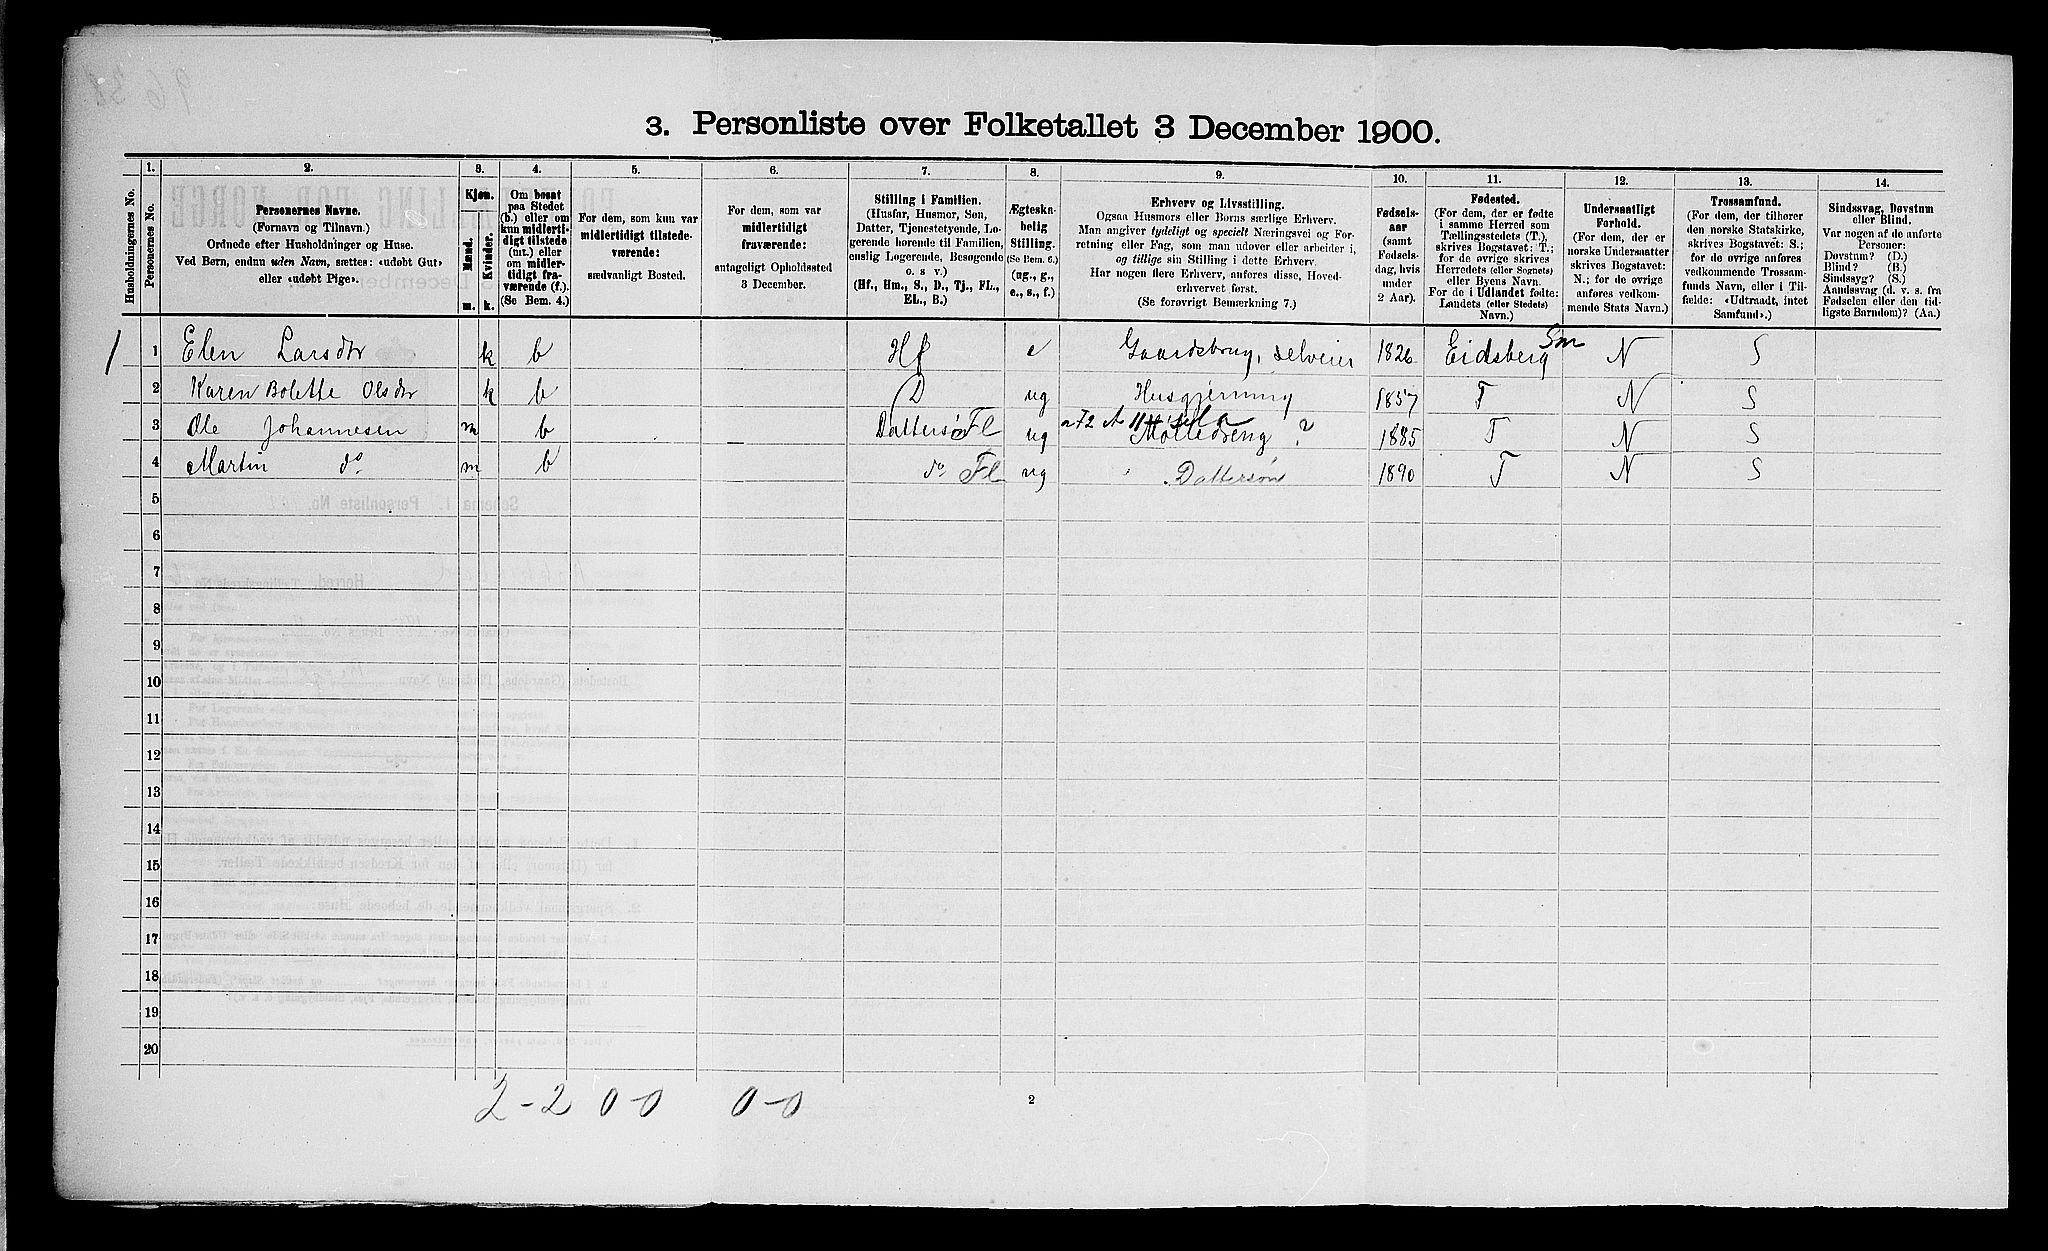 3. Personliste over Folketallet 3 December 1900.
1. 2. 3. 4. 5. 6. 7. 8. 9. 10. 11. 12. 13. 14.
Husholdningernes No.
Personernes No.
Personernes Navne.
(Fornavn og Tilnavn.)
Ordnede efter Husholdninger og Huse.
Ved Børn, endnu uden Navn, sættes: «udøbt Gut»
eller «udøbt Pige».
Kjøn.
Mænd.
Kvinder.
m. k.
Om bosat
paa Stedet
(b.) eller om
kun midlerti-
digt tilstede
(mt.) eller
om midler-
tidigt fra-
værende (f.).
(Se Bem. 4.)
For dem, som kun var
midlertidigt tilstede-
værende:
sædvanligt Bosted.
For dem, som var
midlertidigt
fraværende:
antageligt Opholdssted
3 December.
Stilling i Familien.
(Husfar, Husmor, Søn,
Datter, Tjenestetyende, Lo-
gerende hørende til Familien,
enslig Logerende, Besøgende
o. s v.)
(Hf., Hm., S., D., Tj., FL.,
EL., B.)
Ægteska-
belig
Stilling.
(Se Bem. 6.)
(ug., g.,
e., s., f.)
Erhverv og Livsstilling.
Ogsaa Husmors eller Børns særlige Erhverv.
Man angiver tydeligt og specielt Næringsvei og For-
retning eller Fag, som man udøver eller arbeider i,
og tillige sin Stilling i dette Erhverv.
Har nogen flere Erhverv, anføres disse, Hoved-
erhvervet først.
(Se forøvrigt Bemærkning 7.)
Fødsels-
aar
(samt
Fødsels-
dag, hvis
under
2 Aar).
Fødested.
(For dem, der er fødte
i samme Herred som
Tællingsstedets (T.),
skrives Bogstavet: T.;
for de øvrige skrives
Herredets (eller Sognets)
eller Byens Navn.
For de i Udlandet fødte:
Landets (eller Stedets)
Navn.)
Undersaatligt
Forhold.
(For dem, der er
norske Undersaatter
skrives Bogstavet:
N.; for de øvrige
anføres vedkom-
mende Stats Navn.)
Trossamfund.
(For dem, der tilhører
den norske Statskirke,
skrives Bogstavet: S.;
for de øvrige anføres
vedkommende Trossam-
funds Navn, eller i Til-
fælde: «Udtraadt, intet
Samfund».)
Sindssvag, Døvstum
eller Blind.
Var nogen af de anførte
Personer:
Døvstum? (D.)
Blind? (B.)
Sindssyg? (S.)
Aandssvag (d. v. s. fra
Fødselen eller den tid-
ligste Barndom)? (Aa.)
1 1 Elen Larsdtr k b Hf e Gaardsbrug, selveier 1826 Eidsberg Sm N S
2 Karen Bolette Olsdtr k b D ug Husgjerning 1857 T N S
3 Ole Johannesen m b Datters Fl ug Mølledreng ? 1885 T N S
4 Martin do m b do Fl ug Dattersøn 1890 T N S
5
6
7
8
9
10
11
12
13
14
15
16
17
18
19
20
2-2 0-0 0-0
2